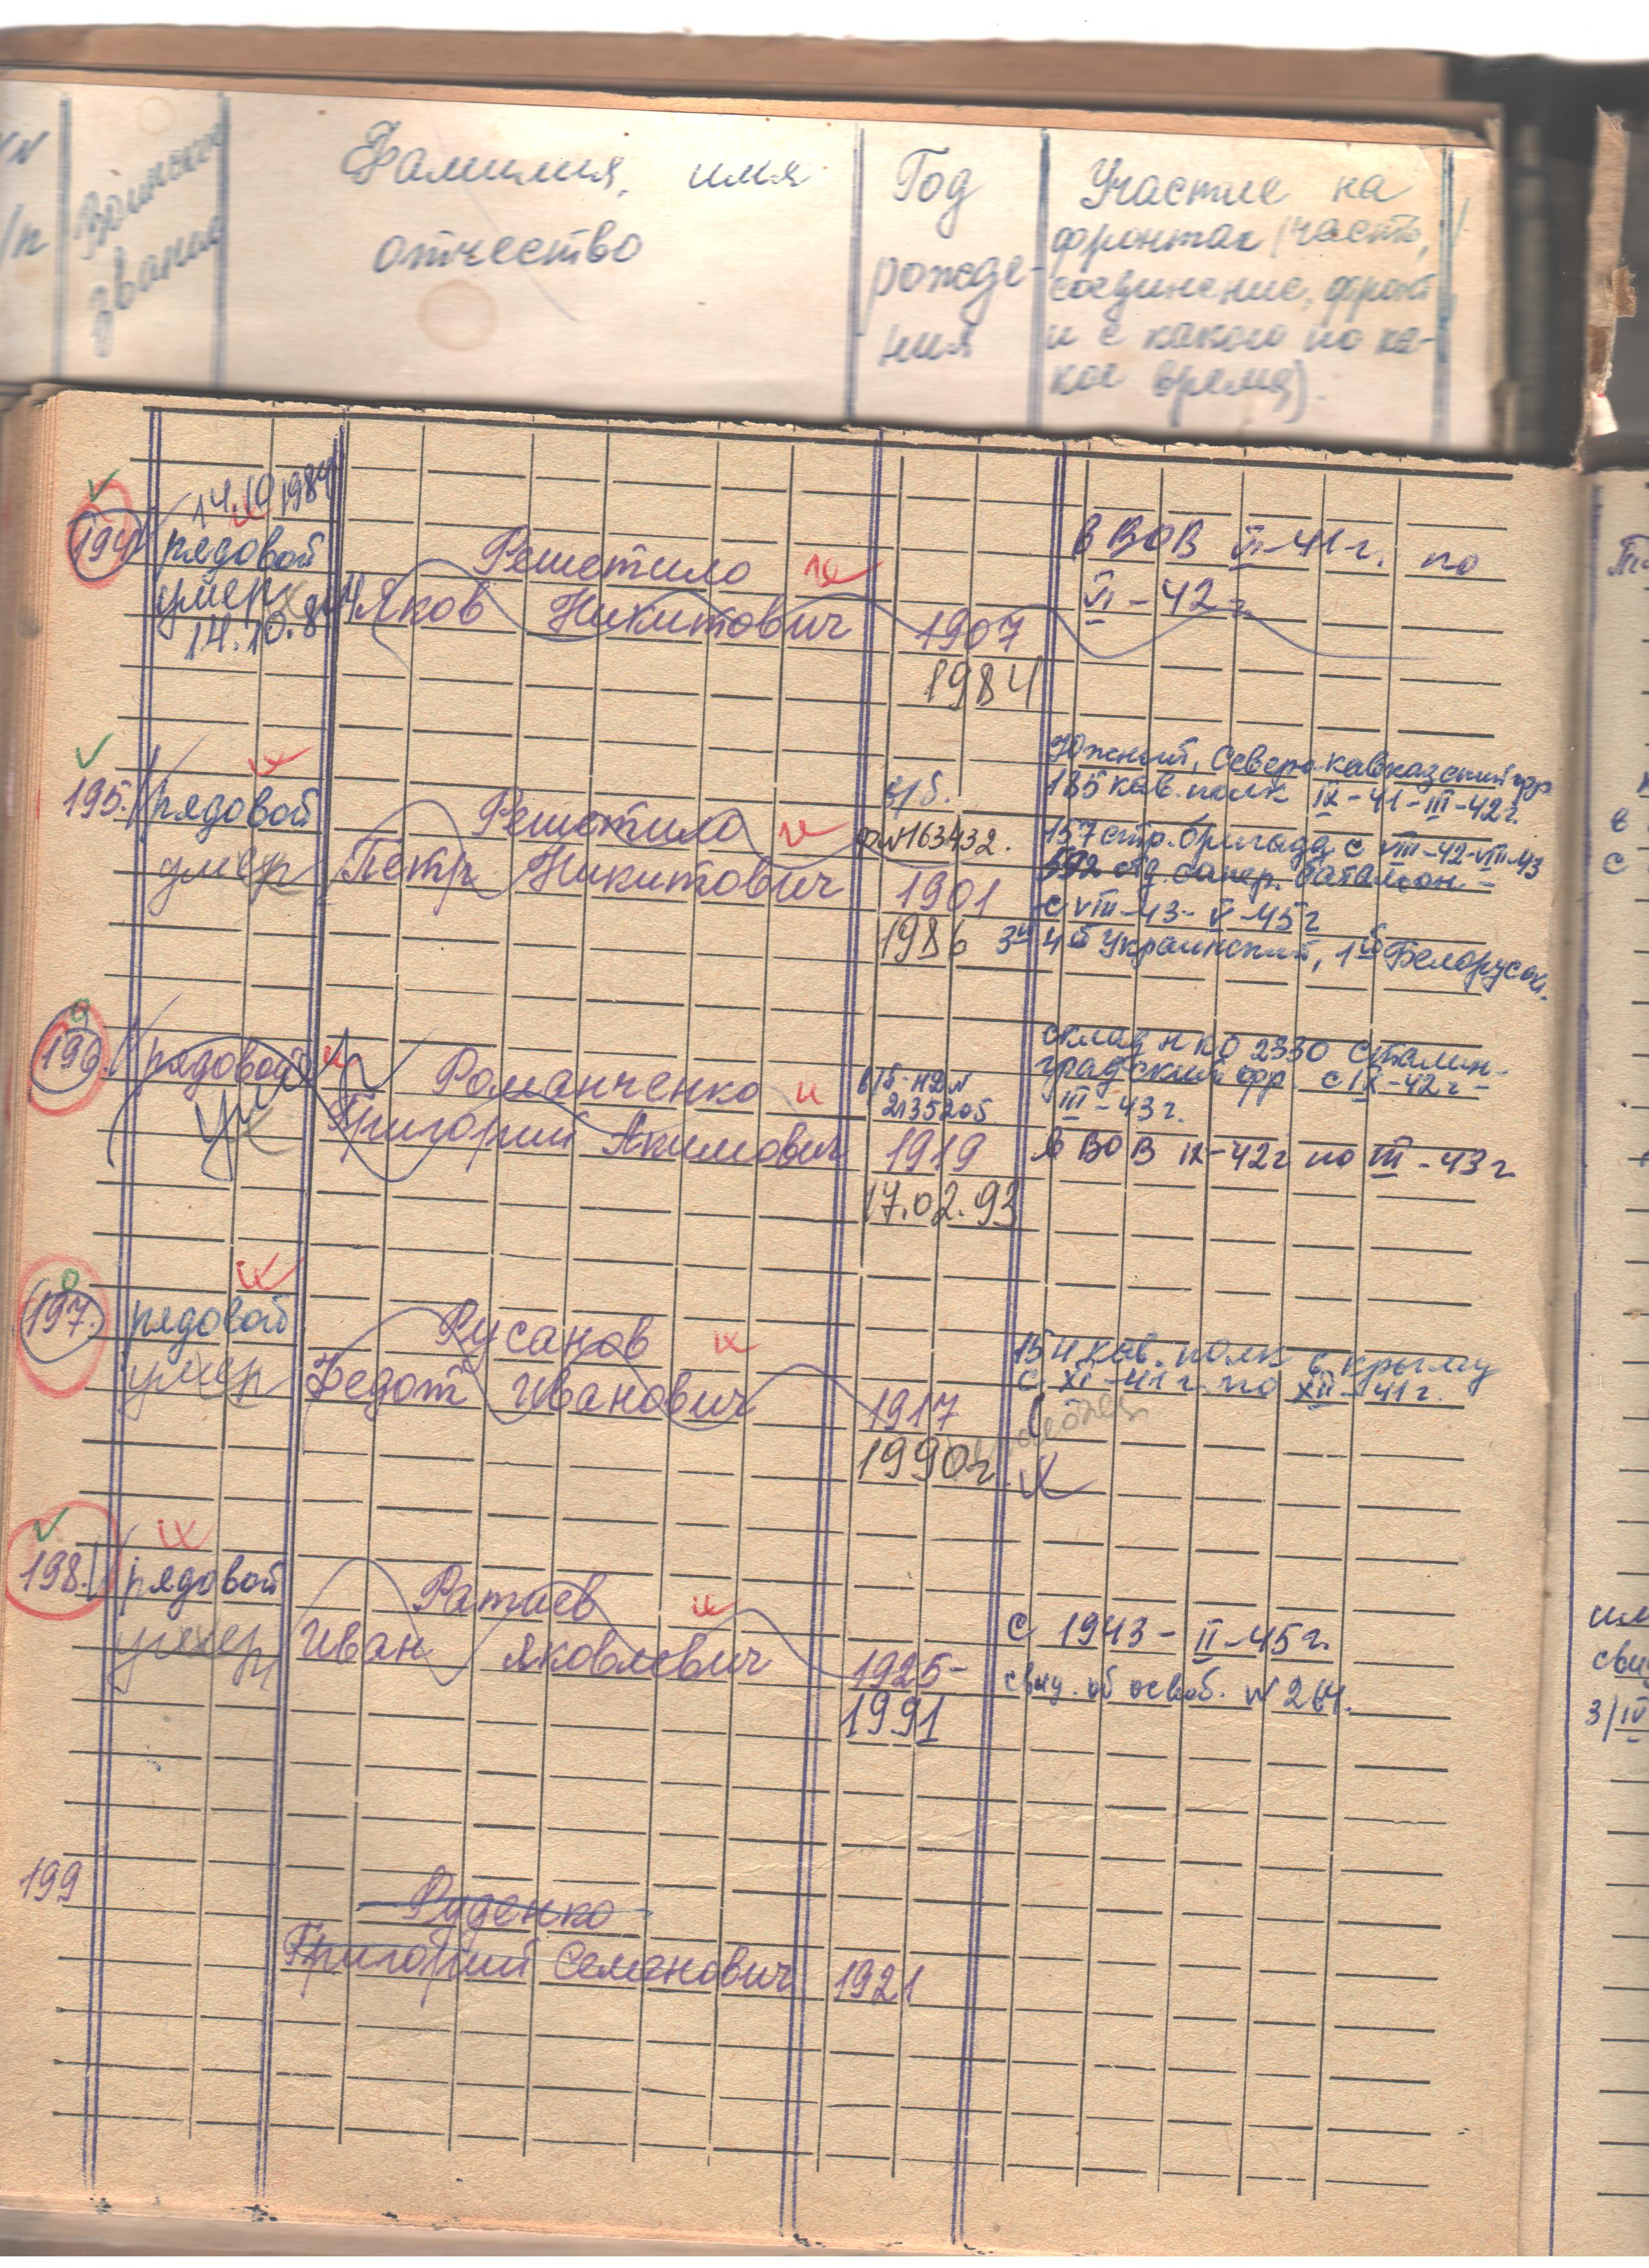 Воинское звание
Фамилия, имя
отчество
Год
рожде-
ния
Участие на
фронтах (часть,
соединение, фронт
и с какого по ка-
кое время).
14.10.1984
194
рядовой
умер
14.10.84
Решетило
Яков Никитович
1907
1984
в ВОВ VI-41г. по
VI-42г.
195.
рядовой
умер
Решетило
Петр Никитович
в/б.
№163432.
1901
1986
Южный, Северо-кавказский фр
185 кав. полк IX-41-III-42г.
157 стр. бригада с VIII-42-VIII-43
592 отд. сапер. батальон -
с VIII-43- V-45г
3й 4й Украинский, 1й Белорусск.
196.
рядовой
Романченко
Григорий Акимович
в/б-Н2 №
2135205
1919
17.02.93
склад НКО 2330 Сталин-
градский фр. с IX-42г-
III-43г.
в ВОВ IX-42г по III-43г
197.
рядовой
умер
Русанов
Федот Иванович
1917
1990г
154 кав. полк в Крыму
с XI-41г. по XII-41г.
198.
рядовой
умер
Ратаев
Иван Яковлевич
1925-
1991
с 1943- II-45г.
свид. об освоб. №264.
199
Руденко
Григорий Семенович
1921